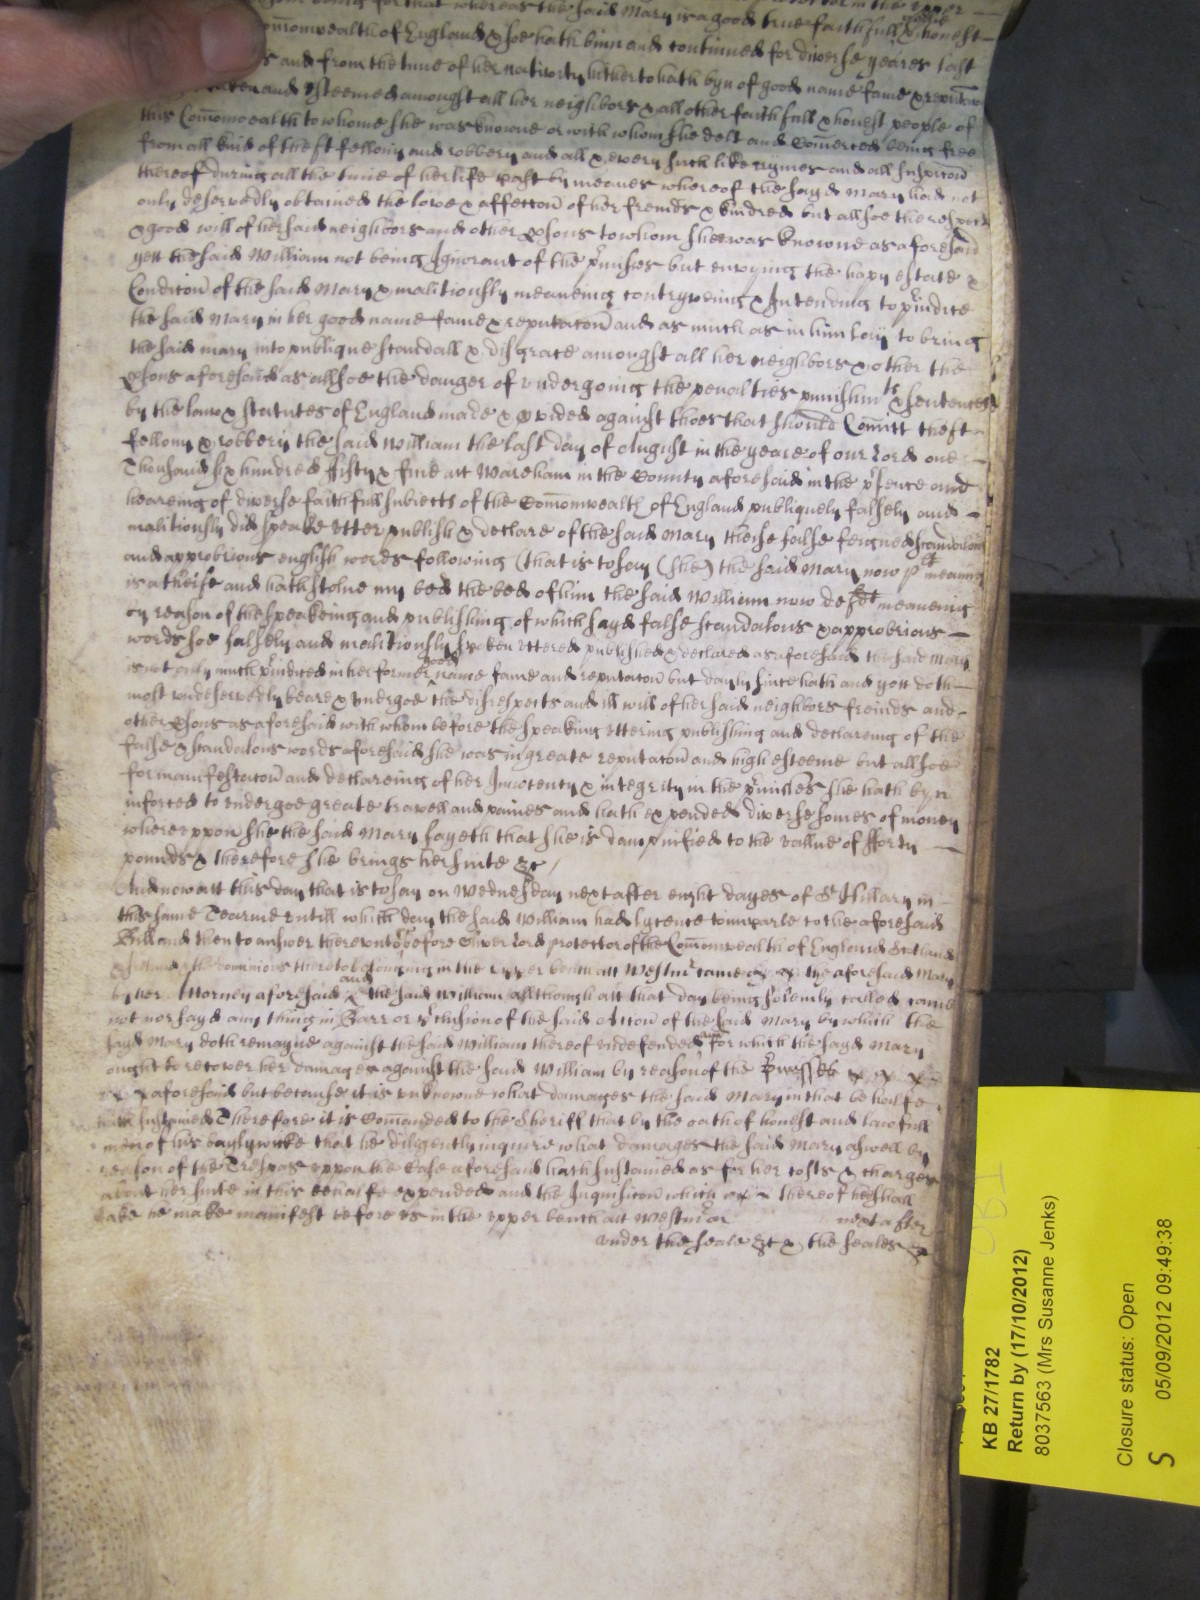 that whereas the said Mary is a good true faithfull & honest
Com̄onwealth of England & soe hath binn and continued for diverse yeares last
and from the time of her nativity hitherto hath byn of good name fame & reputac̄on
and esteemed amongst all her neighbors & all other faithfull & honest people of
this Com̄onwealth to whome she was knowne or with whom she delt and Com̄erced being free
from all kind of theft fellony and robbery and all & every such like crymes and all suspic̄on
thereof during all the time of her life past by meanes whereof the sayd Mary had not
only deservedly obtained the love & affecc̄on of her freinds & kindred but allsoe the respect
& good will of her said neighbors and other p̱sons to whom shee was knowne as aforesaid
yett the said William not being Ignorant of the p̱misses but envying the hapy estate &
Condic̄on of the said Mary & malitiously meaneing contryveing & Intending to p̱iudice
the said Mary in her good name fame & reputac̄on and as much as in him lay to bring
the said mary into publique scandall & disgrace amongst all her neighbors & other the
p̱sons aforesaid as allsoe the danger of undergoing the penalties punishmts & sentences
by the laws & statutes of England made & p̱vided against thoes that should Com̄itt theft
fellony & robbery the said William the last day of August in the yeare of our Lord one
Thousand six hundred fifty & five att Wareham in the County aforesaid in the p̱sence and
heareing of diverse faithfull subiects of the Com̄onwealth of England publiquely falsely and
malitiously did speake utter publish & declare of the said Mary theise false feigned scandalous
and approbrious english words following (that is to say (she) the said Mary now plt meaning
is a theife and hath stolne my bed the bed of him the said William now defet meanening
by reason of the speakeing and publishing of which sayd false scandalous & approbrious
words soe falsely and malitiously spoken uttered published & declared as aforesaid the said Mary
is not only much p̱iudiced in her former good name fame and reputac̄on but dayly since hath and yett doth
most undeservedly beare & undergoe the disrespects and ill will of her said neighbors freinds and
other p̱sons as aforesaid with whom before the speaking uttering publishing and declareing of the
false & scandalous words aforesaid she was in greate reputac̄on and high esteeme but allsoe
for manifestac̄on and declareing of her Innocency & integrity in the p̱misses she hath byn
inforced to undergoe greate travell and paines and hath expended diverse somes of money
whereuppon she the said Mary sayeth that she is dampnified to the vallue of fforty
pounds & therefore she brings her suite &c /
And now att this day that is to say on Wednesday next after eight dayes of St Hillary in
this same Tearme untill which day the said William had lycence to imparle to the aforesaid
Bill and then to answer thereunto &c before Oliver Lord protector of the Com̄onwealth of England Scotland
& Ireland & the dominions thereto belonging in the upper bench att Westmr came the aforesaid Mary
by her Attorney aforesaid and the said William allthough att that day being solemnly called came
not nor sayd any thing in Barr or p̱clusion of the said Acc̄on of the said Mary by which the
sayd Mary doth remayne against the said William thereof undefended for which the sayd Mary
ought to recover her damages against the said William by reason of the p̱misses
aforesaid but because it is unknowne what damages the said Mary in that behalfe
hath sustained Therefore it is Com̄anded to the Sheriff that by the oath of honest and lawfull
men of his baylywicke that he diligently inquire what damages the said Mary aswell by
reason of the Trespas uppon the Case aforesaid hath sustained as for her costs & charges
about her suite in this behalfe expended and the Inquisic̄on which thereof he shall
take he make manifest before us in the upper bench att Westmr on next after
under the seale &c & the seales &c
KB 27/1782
Return by (17/10/2012)
8037563 (Mrs Susanne Jenks)
Closure status: Open
S 05/09/2012 09:49:38